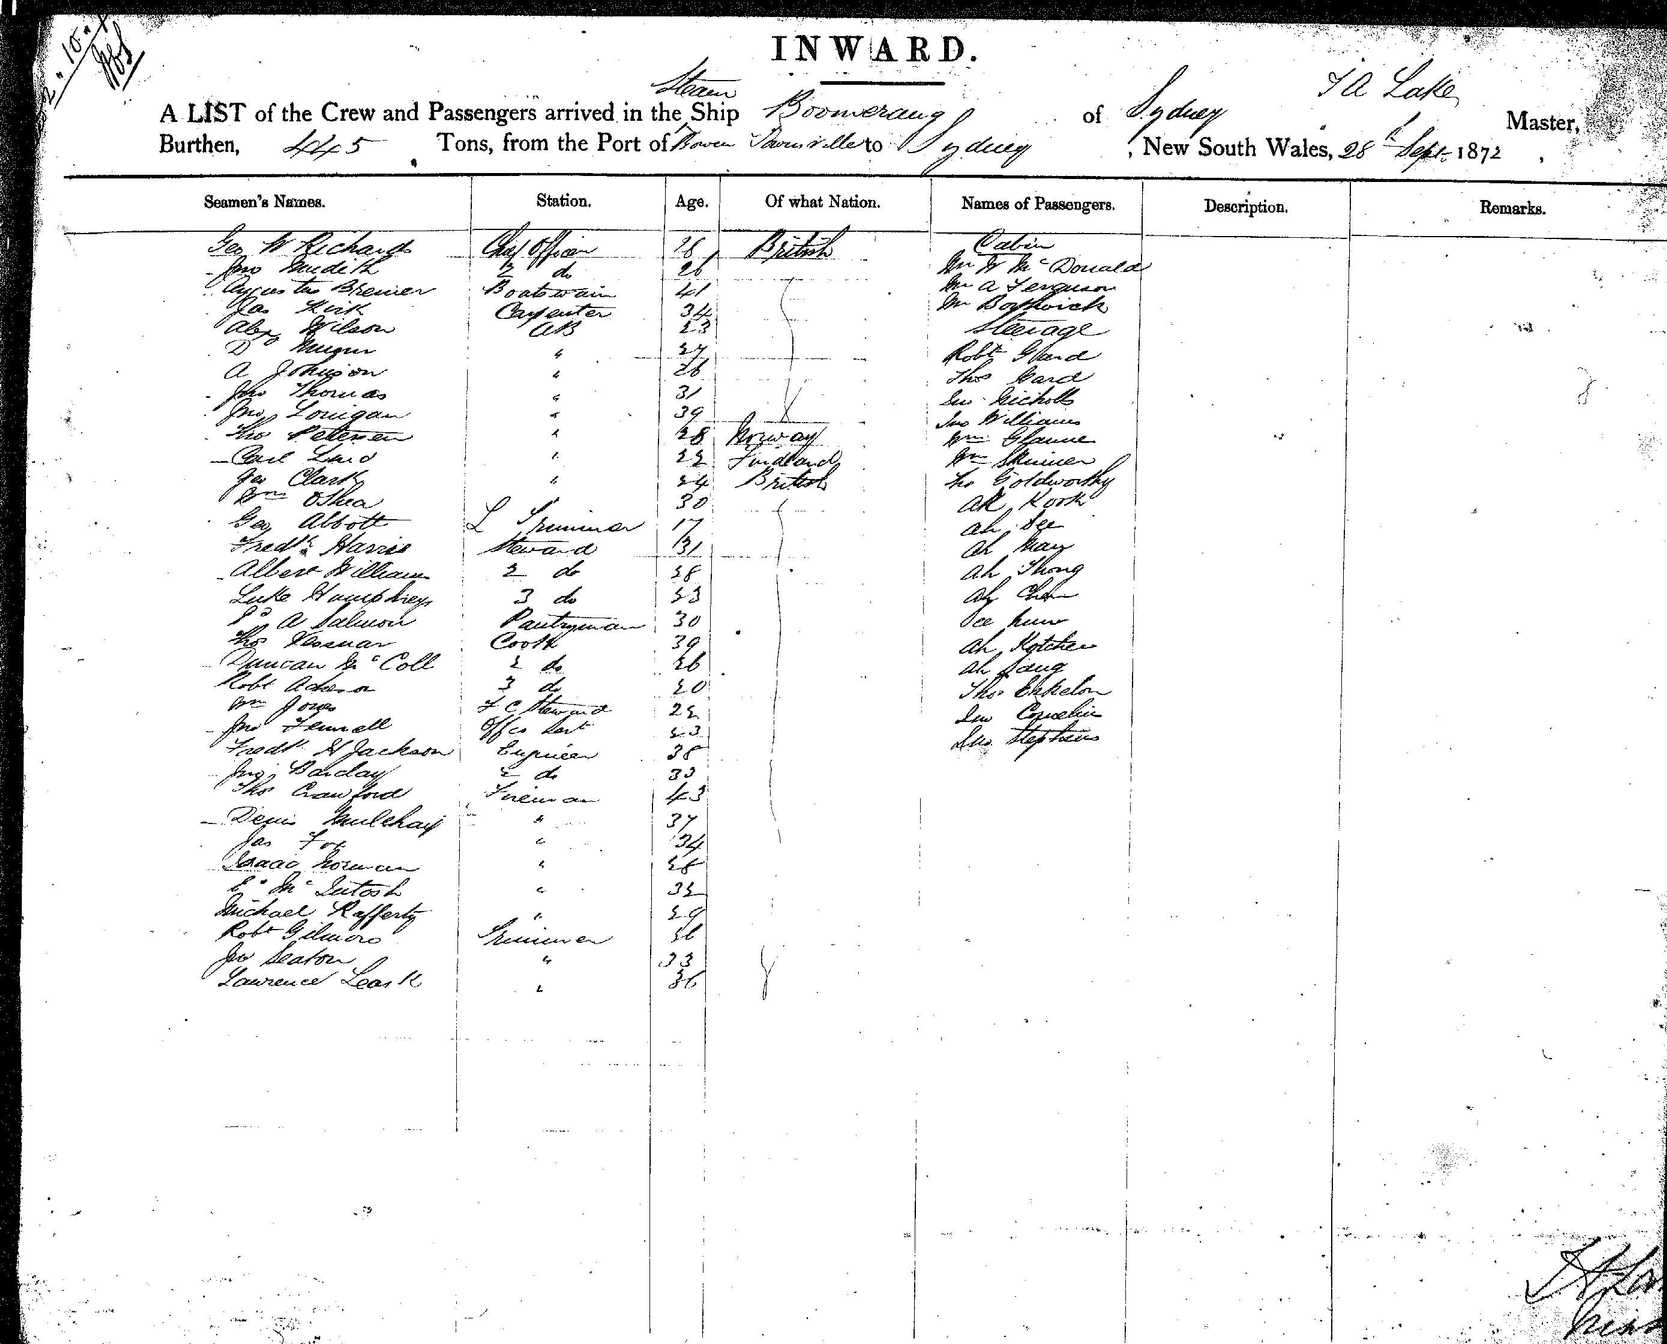 INWARD.
Steam T A Lake
A LIST of the Crew and Passengers arrived in the Ship Boomerang of Sydney Master,
Burthen, 445 Tons, from the Port of Bowen Townsville to Sydney, New South Wales, 28th Sept 1872,
Seamen's Names. Station. Age. Of what Nation. Names of Passengers. Description. Remarks.
Geo W Richards Chief Officer 28 British Cabin
Jno 2 do 26 Mr W McDonald
Augustus Bremer Boatswain 41 Mr A Ferguson
Jas Kirk Carpenter 34 Mr Borthwick
Alex Wilson AB 23 Steerage
Do " 27 Robt Gard
A Johnson " 26 Thos Gard
Jno Thomas " 31 Jno Nicholls
Jno Lonigan " 39 Jno Williams
Thos Petersen " 28 Norway Wm
Carl " 22 Findland Wm Skinner
Geo Clark " 24 British Thos Goldworthy
Wm OShea 30 Ah Kook
Geo Abbott L Trimmer 17 Ah See
Fredk Harris Steward 31 Ah May
Albert Williams 2 do 28 Ah Thong
Luke Humphreys 3 do 23 Ah
A Salmon Pantryman 30 See
Thos Cook 39 Ah
Duncan McColl 2 do 26 Ah
Robt 3 do 20 Thos
Wm Jones F C Steward 22 Jno
Jno Fennell Offcs Sert 23 Jno Stephens
Fredk H Jackson Engineer 38
Jno Barclay 2 do 33
Thos Crawford Fireman 43
Denis " 37
Jas Fox " 34
Isaac Norman " 28
McIntosh " 32
Michael Rafferty " 29
Robt Gilmore Trimmer 36
Jno Seaton " 33
Lawrence Leask " 36